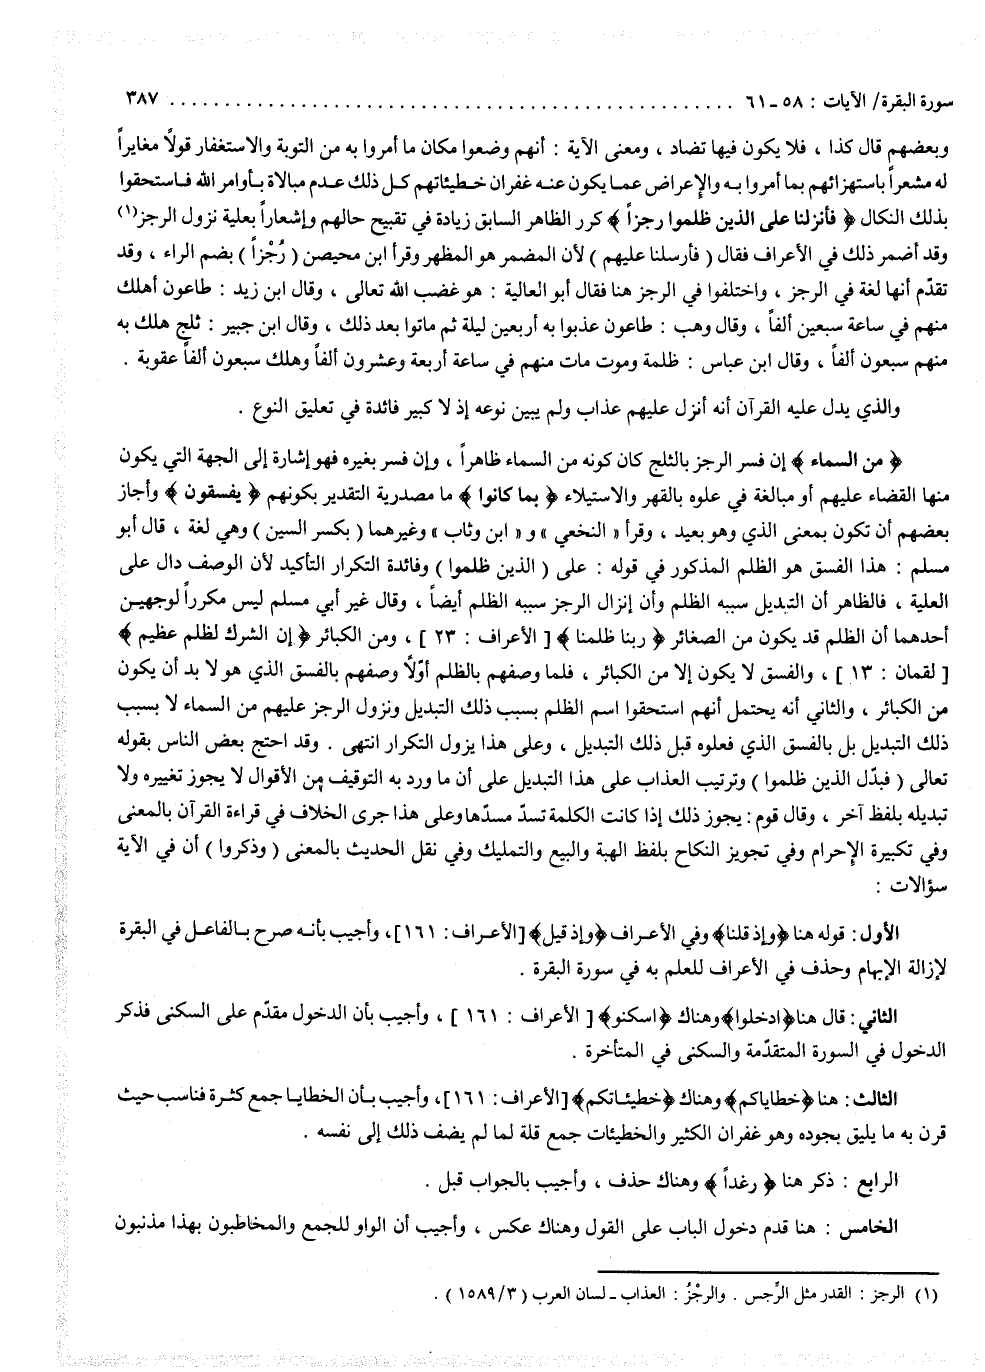 سورة البقرة/ الآيات : ٥٨ ـ ٦١ ............................................................ ٣٨٧
وبعضهم قال كذا ، فلا يكون فيها تضاد ، ومعنى الآية : أنهم وضعوا مكان ما أمروا به من التوبة والاستغفار قولاً مغايراً
له مشعراً باستهزائهم بما أمروا به والإعراض عما يكون عنه غفران خطيئاتهم كل ذلك عدم مبالاة بأوامر الله فاستحقوا
بذلك النكال ﴿ فأنزلنا على الذين ظلموا رجزاً ﴾ كرر الظاهر السابق زيادة في تقبيح حالهم وإشعاراً بعلية نزول الرجز(١)
وقد أضمر ذلك في الأعراف فقال ( فأرسلنا عليهم ) لأن المضمر هو المظهر وقرأ ابن محيصن ( رُجْزاً ) بضم الراء ، وقد
تقدّم أنها لغة في الرجز ، واختلفوا في الرجز هنا فقال أبو العالية : هو غضب الله تعالى ، وقال ابن زيد : طاعون أهلك
منهم في ساعة سبعين ألفاً ، وقال وهب : طاعون عذبوا به أربعين ليلة ثم ماتوا بعد ذلك ، وقال ابن جبير : ثلج هلك به
منهم سبعون ألفاً ، وقال ابن عباس : ظلمة وموت مات منهم في ساعة أربعة وعشرون ألفاً وهلك سبعون ألفاً عقوبة .
والذي يدل عليه القرآن أنه أنزل عليهم عذاب ولم يبين نوعه إذ لا كبير فائدة في تعليق النوع .
﴿ من السماء ﴾ إن فسر الرجز بالثلج كان كونه من السماء ظاهراً ، وإن فسر بغيره فهو إشارة إلى الجهة التي يكون
منها القضاء عليهم أو مبالغة في علوه بالقهر والاستيلاء ﴿ بما كانوا ﴾ ما مصدرية التقدير بكونهم ﴿ يفسقون ﴾ وأجاز
بعضهم أن تكون بمعنى الذي وهو بعيد ، وقرأ « النخعي » و « ابن وثاب » وغيرهما ( بكسر السين ) وهي لغة ، قال أبو
مسلم : هذا الفسق هو الظلم المذكور في قوله : على ( الذين ظلموا ) وفائدة التكرار التأكيد لأن الوصف دال على
العلية ، فالظاهر أن التبديل سببه الظلم وأن إنزال الرجز سببه الظلم أيضاً ، وقال غير أبي مسلم ليس مكرراً لوجهين
أحدهما أن الظلم قد يكون من الصغائر ﴿ ربنا ظلمنا ﴾ [ الأعراف : ٢٣ ] ، ومن الكبائر ﴿ إن الشرك لظلم عظيم ﴾
[ لقمان : ١٣ ] ، والفسق لا يكون إلا من الكبائر ، فلما وصفهم بالظلم أوّلاً وصفهم بالفسق الذي هو لا بد أن يكون
من الكبائر ، والثاني أنه يحتمل أنهم استحقوا اسم الظلم بسبب ذلك التبديل ونزول الرجز عليهم من السماء لا بسبب
ذلك التبديل بل بالفسق الذي فعلوه قبل ذلك التبديل ، وعلى هذا يزول التكرار انتهى . وقد احتج بعض الناس بقوله
تعالى ( فبدّل الذين ظلموا ) وترتيب العذاب على هذا التبديل على أن ما ورد به التوقيف من الأقوال لا يجوز تغييره ولا
تبديله بلفظ آخر ، وقال قوم : يجوز ذلك إذا كانت الكلمة تسدّ مسدّها وعلى هذا جرى الخلاف في قراءة القرآن بالمعنى
وفي تكبيرة الإحرام وفي تجويز النكاح بلفظ الهبة والبيع والتمليك وفي نقل الحديث بالمعنى ( وذكروا ) أن في الآية
سؤالات :
الأول : قوله هنا ﴿وإذ قلنا﴾ وفي الأعراف ﴿وإذ قيل﴾ [الأعراف : ١٦١]، وأجيب بأنه صرح بالفاعل في البقرة
لإزالة الإبهام وحذف في الأعراف للعلم به في سورة البقرة .
الثاني : قال هنا ﴿ادخلوا﴾ وهناك ﴿اسكنو﴾ [ الأعراف : ١٦١ ] ، وأجيب بأن الدخول مقدّم على السكنى فذكر
الدخول في السورة المتقدّمة والسكنى في المتأخرة .
الثالث : هنا ﴿خطاياكم﴾ وهناك ﴿خطيئاتكم﴾ [الأعراف : ١٦١]، وأجيب بأن الخطايا جمع كثرة فناسب حيث
قرن به ما يليق بجوده وهو غفران الكثير والخطيئات جمع قلة لما لم يضف ذلك إلى نفسه .
الرابع : ذكر هنا ﴿ رغداً ﴾ وهناك حذف ، وأجيب بالجواب قبل .
الخامس : هنا قدم دخول الباب على القول وهناك عكس ، وأجيب أن الواو للجمع والمخاطبون بهذا مذنبون
(١) الرجز : القدر مثل الرِّجس . والرجْزُ : العذاب ـ لسان العرب ( ٣/ ١٥٨٩ ) .